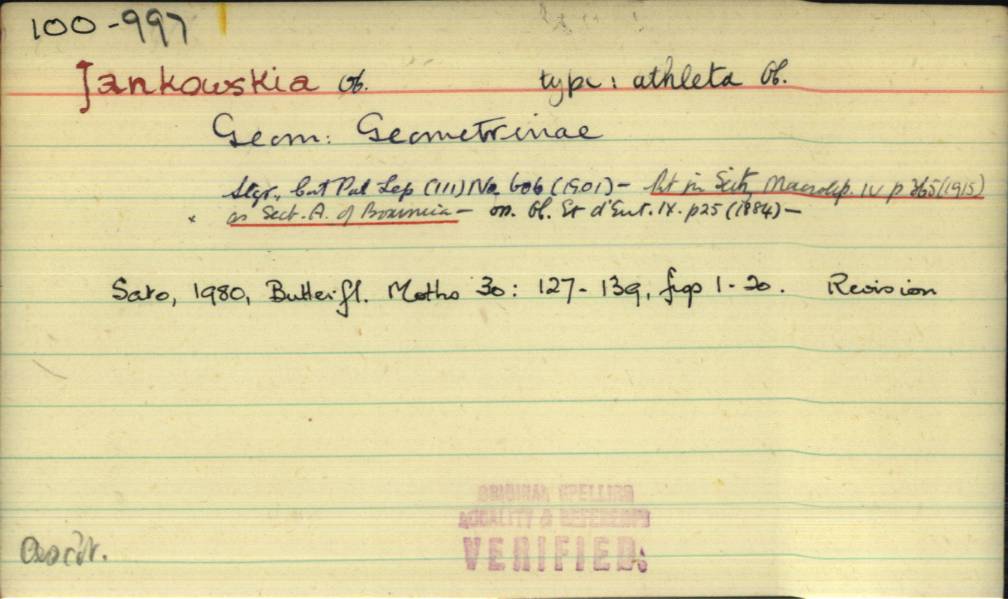 100-997
Jankowskia Ob. type: athleta Ob.
Geom: Geometrinae
Stgr., Cat Pal Lep (111) No. 606 (1901) - Pt in Seitz, Macrolep. IV p 365 (1915)
as Sect. A. of Boarmia - on. Ob. Et d'Ent. IX. p25 (1884) -
Sato, 1980, Butterfl. Moths 30: 127-139, figs 1-20. Revision
ORIGINAL SPELLING
LOCALITY & REFERENCE
VERIFIED: